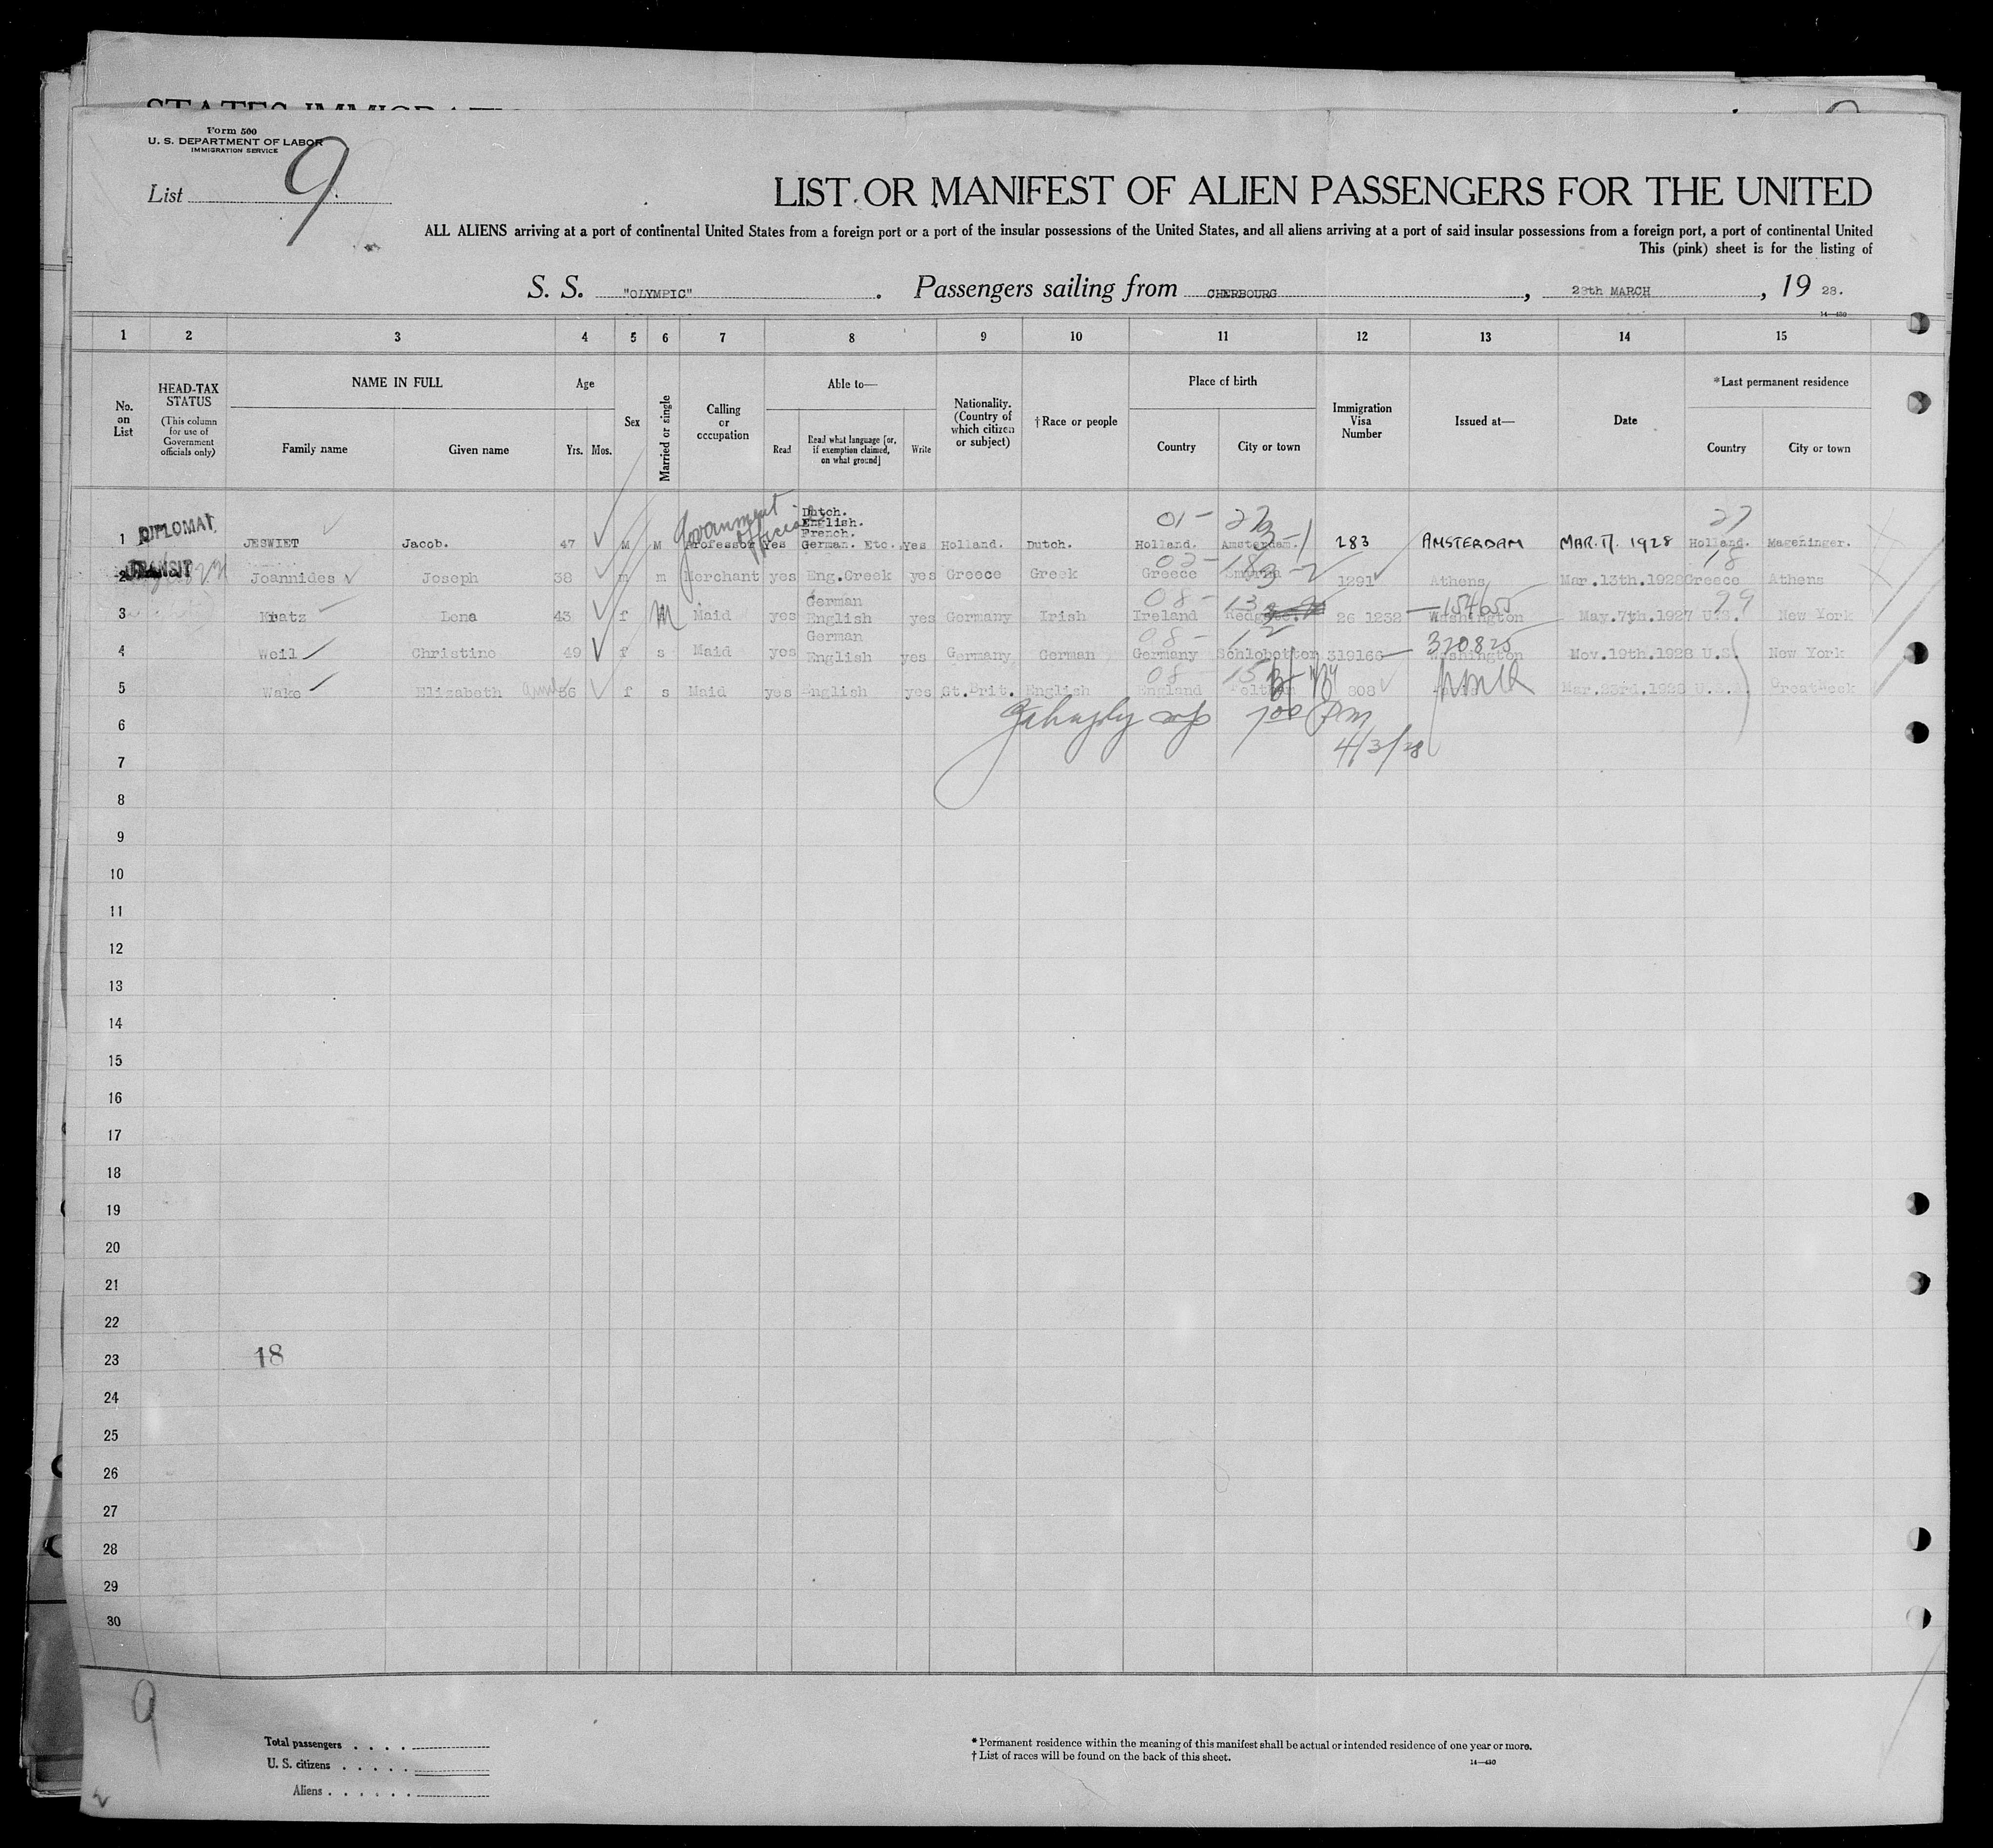 Form 500
U. S. DEPARTMENT OF LABOR
IMMIGRATION SERVICE
List 9
LIST OR MANIFEST OF ALIEN PASSENGERS FOR THE UNITED
ALL ALIENS arriving at a port of continental United States from a foreign port or a port of the insular possessions of the United States, and all aliens arriving at a port of said insular possessions from a foreign port, a port of continental United
This (pink) sheet is for the listing of
S. S. "OLYMPIC". Passengers sailing from CHERBOURG, 28th MARCH, 19 28.
14—430
1 2 3 4 5 6 7 8 9 10 11 12 13 14 15
No. on List
HEAD-TAX STATUS
(This column for use of Government officials only)
NAME IN FULL
Family name Given name
Age
Yrs. Mos.
Sex
Married or single
Calling or occupation
Able to—
Read Read what language [or, if exemption claimed, on what ground] Write
Nationality. (Country of which citizen or subject)
†Race or people
Place of birth
Country City or town
Immigration Visa Number
Issued at—
Date
*Last permanent residence
Country City or town
1 DIPLOMAT JESWIET Jacob. 47 M M Professor Government Official Yes Dutch. English. French. German. Etc. Yes Holland. Dutch. 01- 27 Holland. Amsterdam. 3-1 283 AMSTERDAM MAR.17. 1928 27 Holland. Mageninger.
2 TRANSIT Joannides Joseph 38 m m Merchant yes Eng.Greek yes Greece Greek 02- 18 Greece Smyrna 3-2 1291 Athens Mar.13th.1928 18 Greece Athens
3 Kratz Lena 43 f M Maid yes German English yes Germany Irish 08- 13 Ireland 26 1232 154655 Washington May.7th.1927 99 U.S. New York
4 Weil Christine 49 f s Maid yes German English yes Germany German 08- 1 Germany Schlobotten 319166 320825 Washington Nov.19th.1928 U.S. New York
5 Wake Elizabeth 56 f s Maid yes English yes Gt.Brit. English 08- 15 England 808 Mar.23rd.1928 U.S.A. GreatNeck
6 7 00 Pm
4/3/28
7
8
9
10
11
12
13
14
15
16
17
18
19
20
21
22
23 18
24
25
26
27
28
29
30
9
Total passengers
U. S. citizens
Aliens
* Permanent residence within the meaning of this manifest shall be actual or intended residence of one year or more.
† List of races will be found on the back of this sheet.
14—430